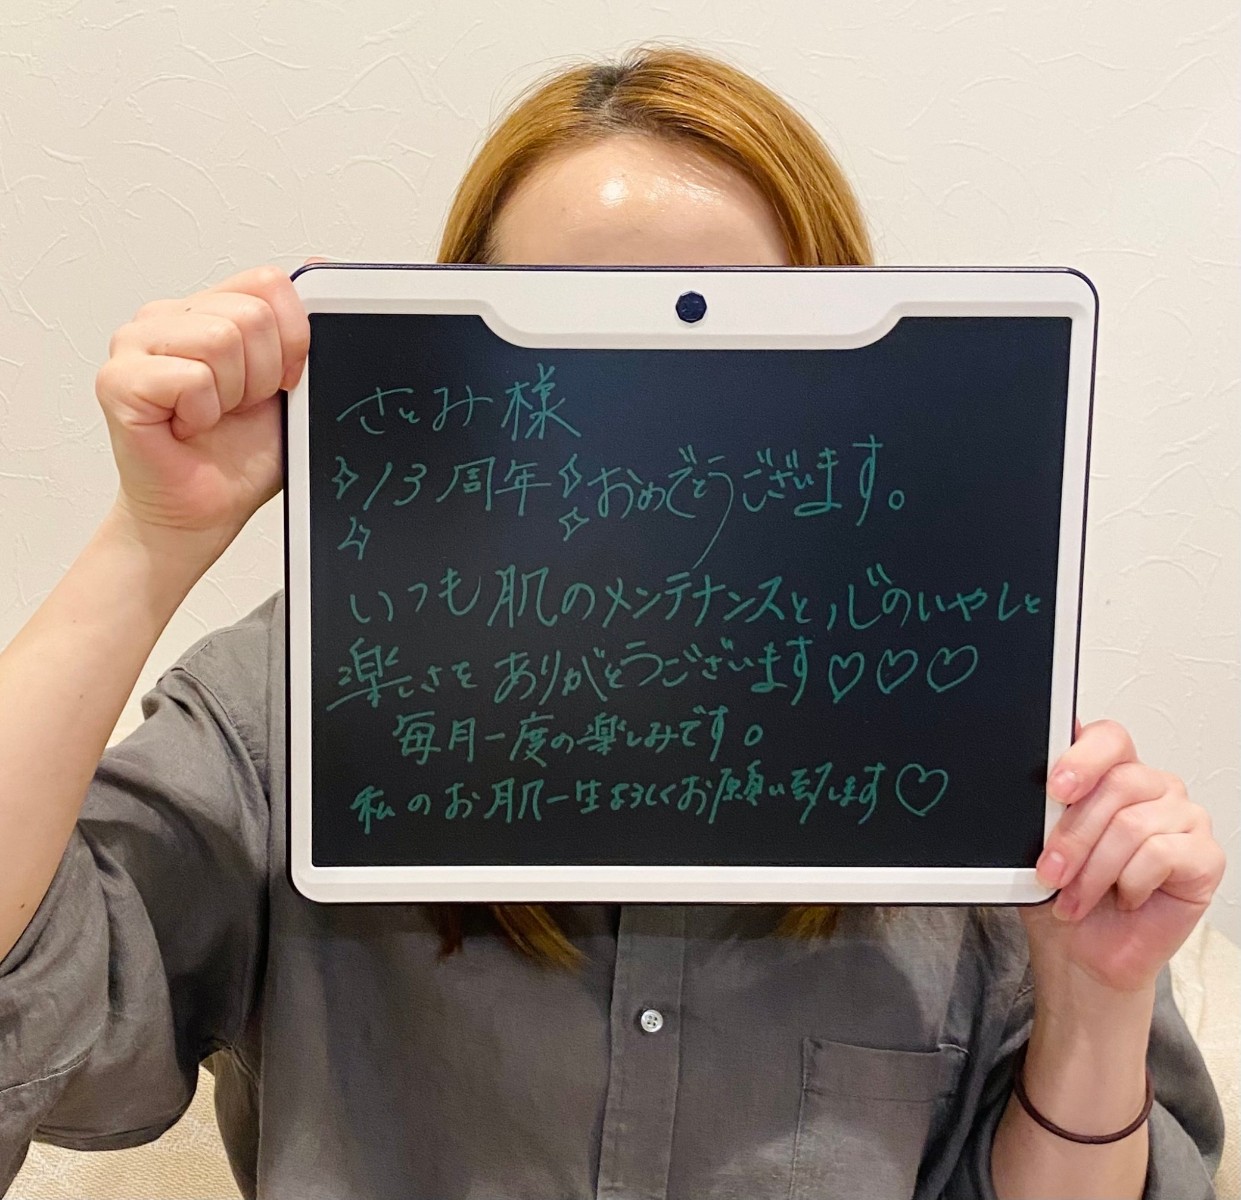 さとみ様
13周年 おめでとうございます。
いつも肌のメンテナンスと心のいやしと
楽しさをありがとうございます♡♡♡
毎月一度の楽しみです。
私のお肌一生よろしくお願い致します♡